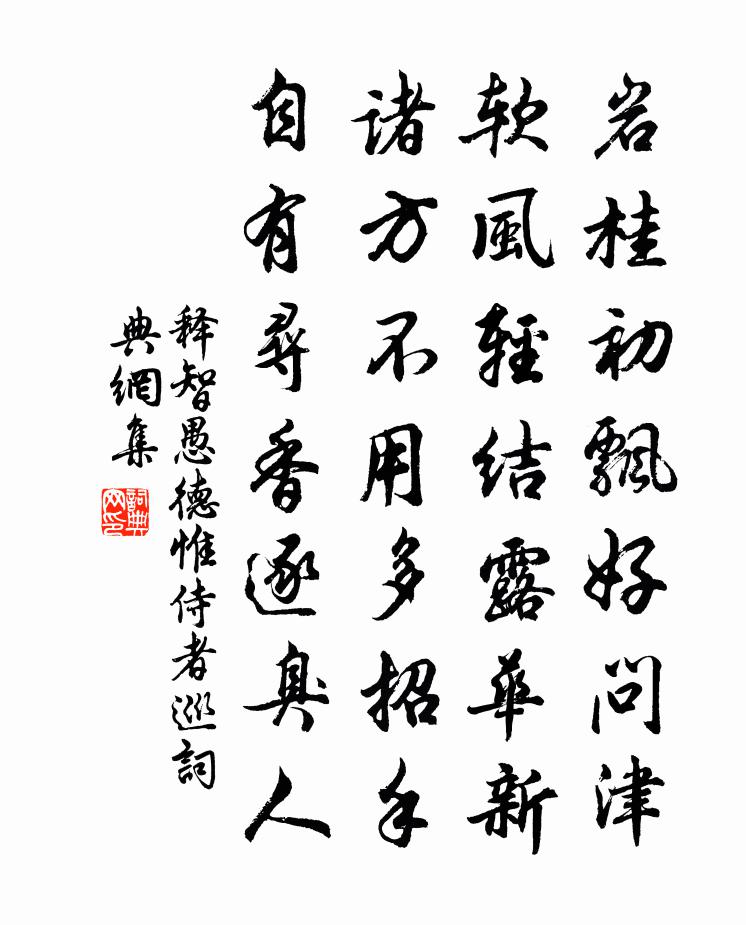 岩桂初飄好問津
軟風輕結露華新
諸方不用多招手
自有尋香逐臭人
释智愚德惟侍者巡詞
典網集
詞典网印